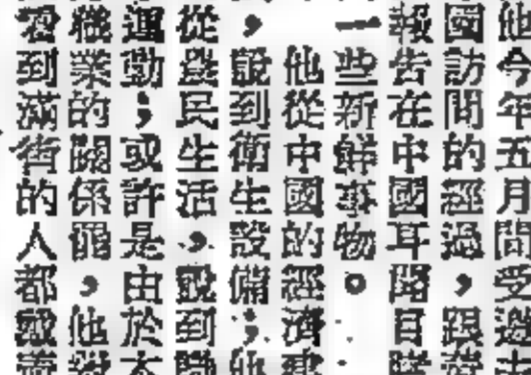 他今年五月間受邀
國訪問的經過，跟
報告在中國耳聞目睹
一些新鮮事物。
他從中國的經濟建
，說到衛生設備；他
從農民生活，說到
運動；或許是，由於
職業的關係罷，他
看到滿街的人都戴